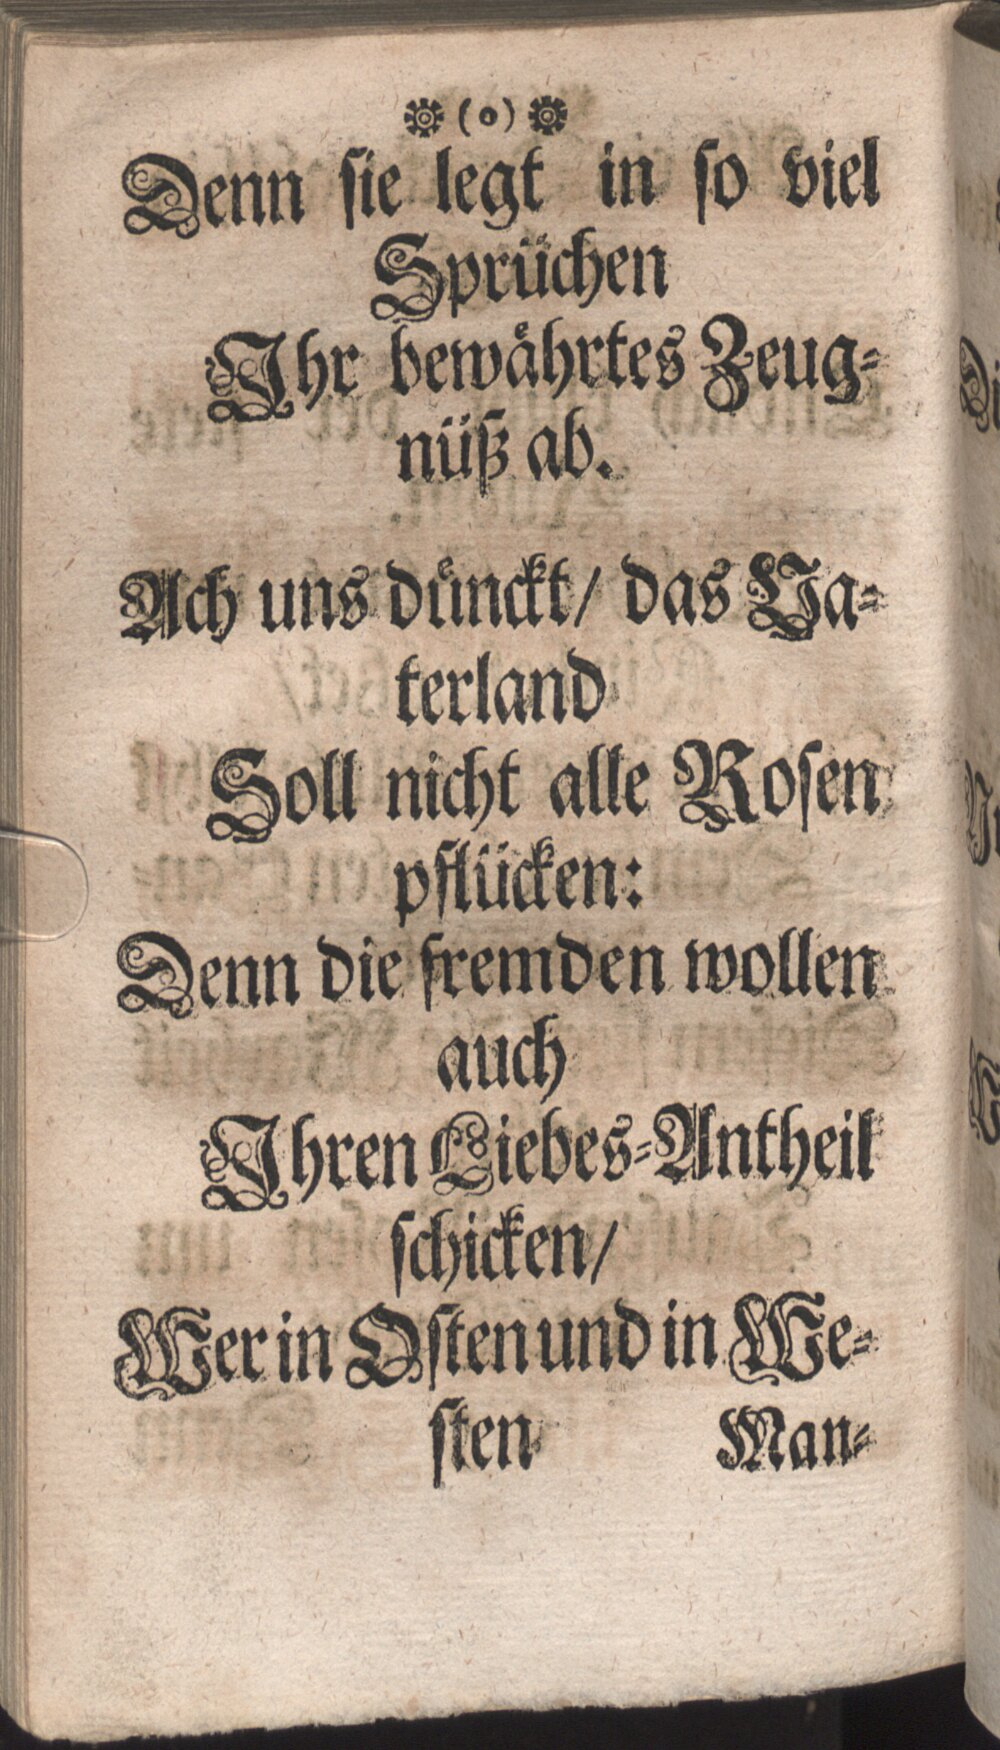 ❁ (o) ❁
Denn sie legt in so viel
Sprüchen
Ihr bewährtes Zeug-
nüß ab.
Ach uns dünckt/ das Va-
terland
Soll nicht alle Rosen
pflücken:
Denn die fremden wollen
auch
Ihren Liebes-Antheil
schicken/
Wer in Osten und in We-
sten
Man-